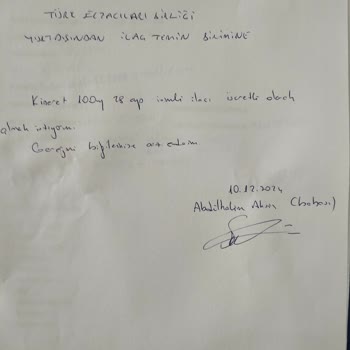 TÜRK ECZACILARI BİRLİĞİ
YURTDIŞINDAN İLAÇ TEMİN BİRİMİNE
Kineret 100 28 isimli ilacı ücretli olarak
almak istiyorum.
Gereğini bilgilerinize arz ederim
10.12.2024
Abdulhalim (babası)